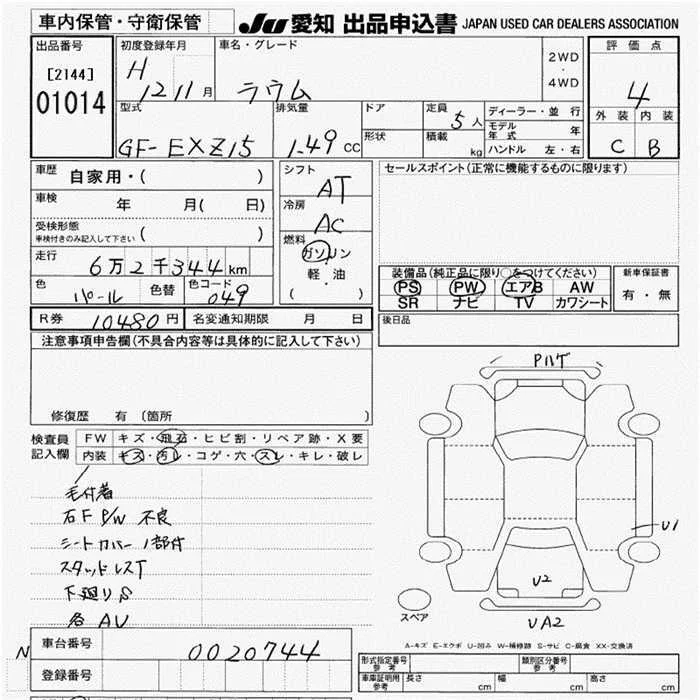 車内保管・守衛保管 JU 愛知 出品申込書 JAPAN USED CAR DEALERS ASSOCIATION
出品番号 初度登録年月 車名・グレード 2WD・4WD 評価点
[2144] H 12 11月 ラウム 4
01014 型式 排気量 ドア 定員 5人 ディーラー・並行 外装 内装
形状 積載 kg モデル年式 年
GF-EXZ15 1.49 CC ハンドル 左・右 C B
車歴 自家用・( ) シフト AT セールスポイント(正常に機能するものに限ります)
車検 年 月( 日) 冷房 AC
受検形態 ( )
車検付きのみ記入して下さい
走行 6万2千344km 燃料 ガソリン 軽・油 ( )
装備品(純正品に限り○をつけてください) 新車保証書
色 パール 色替 色コード 049 PS PW エアB AW 有・無
SR ナビ TV カワシート
R券 10480円 名変通知期限 月 日 後日品
注意事項申告欄(不具合内容等は具体的に記入して下さい)
Pハゲ
修復歴 有(箇所 )
検査員 FW キズ・飛石・ヒビ割・リペア跡・X要
記入欄 内装 キズ・汚レ・コゲ・穴・スレ・キレ・破レ
毛付着
石F P/W 不良
U1
シートカバー1部付
スタッドレスT
U2
下廻りS
スペア
各AU
UA2
A-キズ E-エクボ U-凹み W-補修跡 S-サビ C-腐食 XX-交換済
N 車台番号 0020744
形式指定番号 参考 類別区分番号 参考
登録番号 車庫証明用 参考 長さ cm 幅 cm 高さ cm